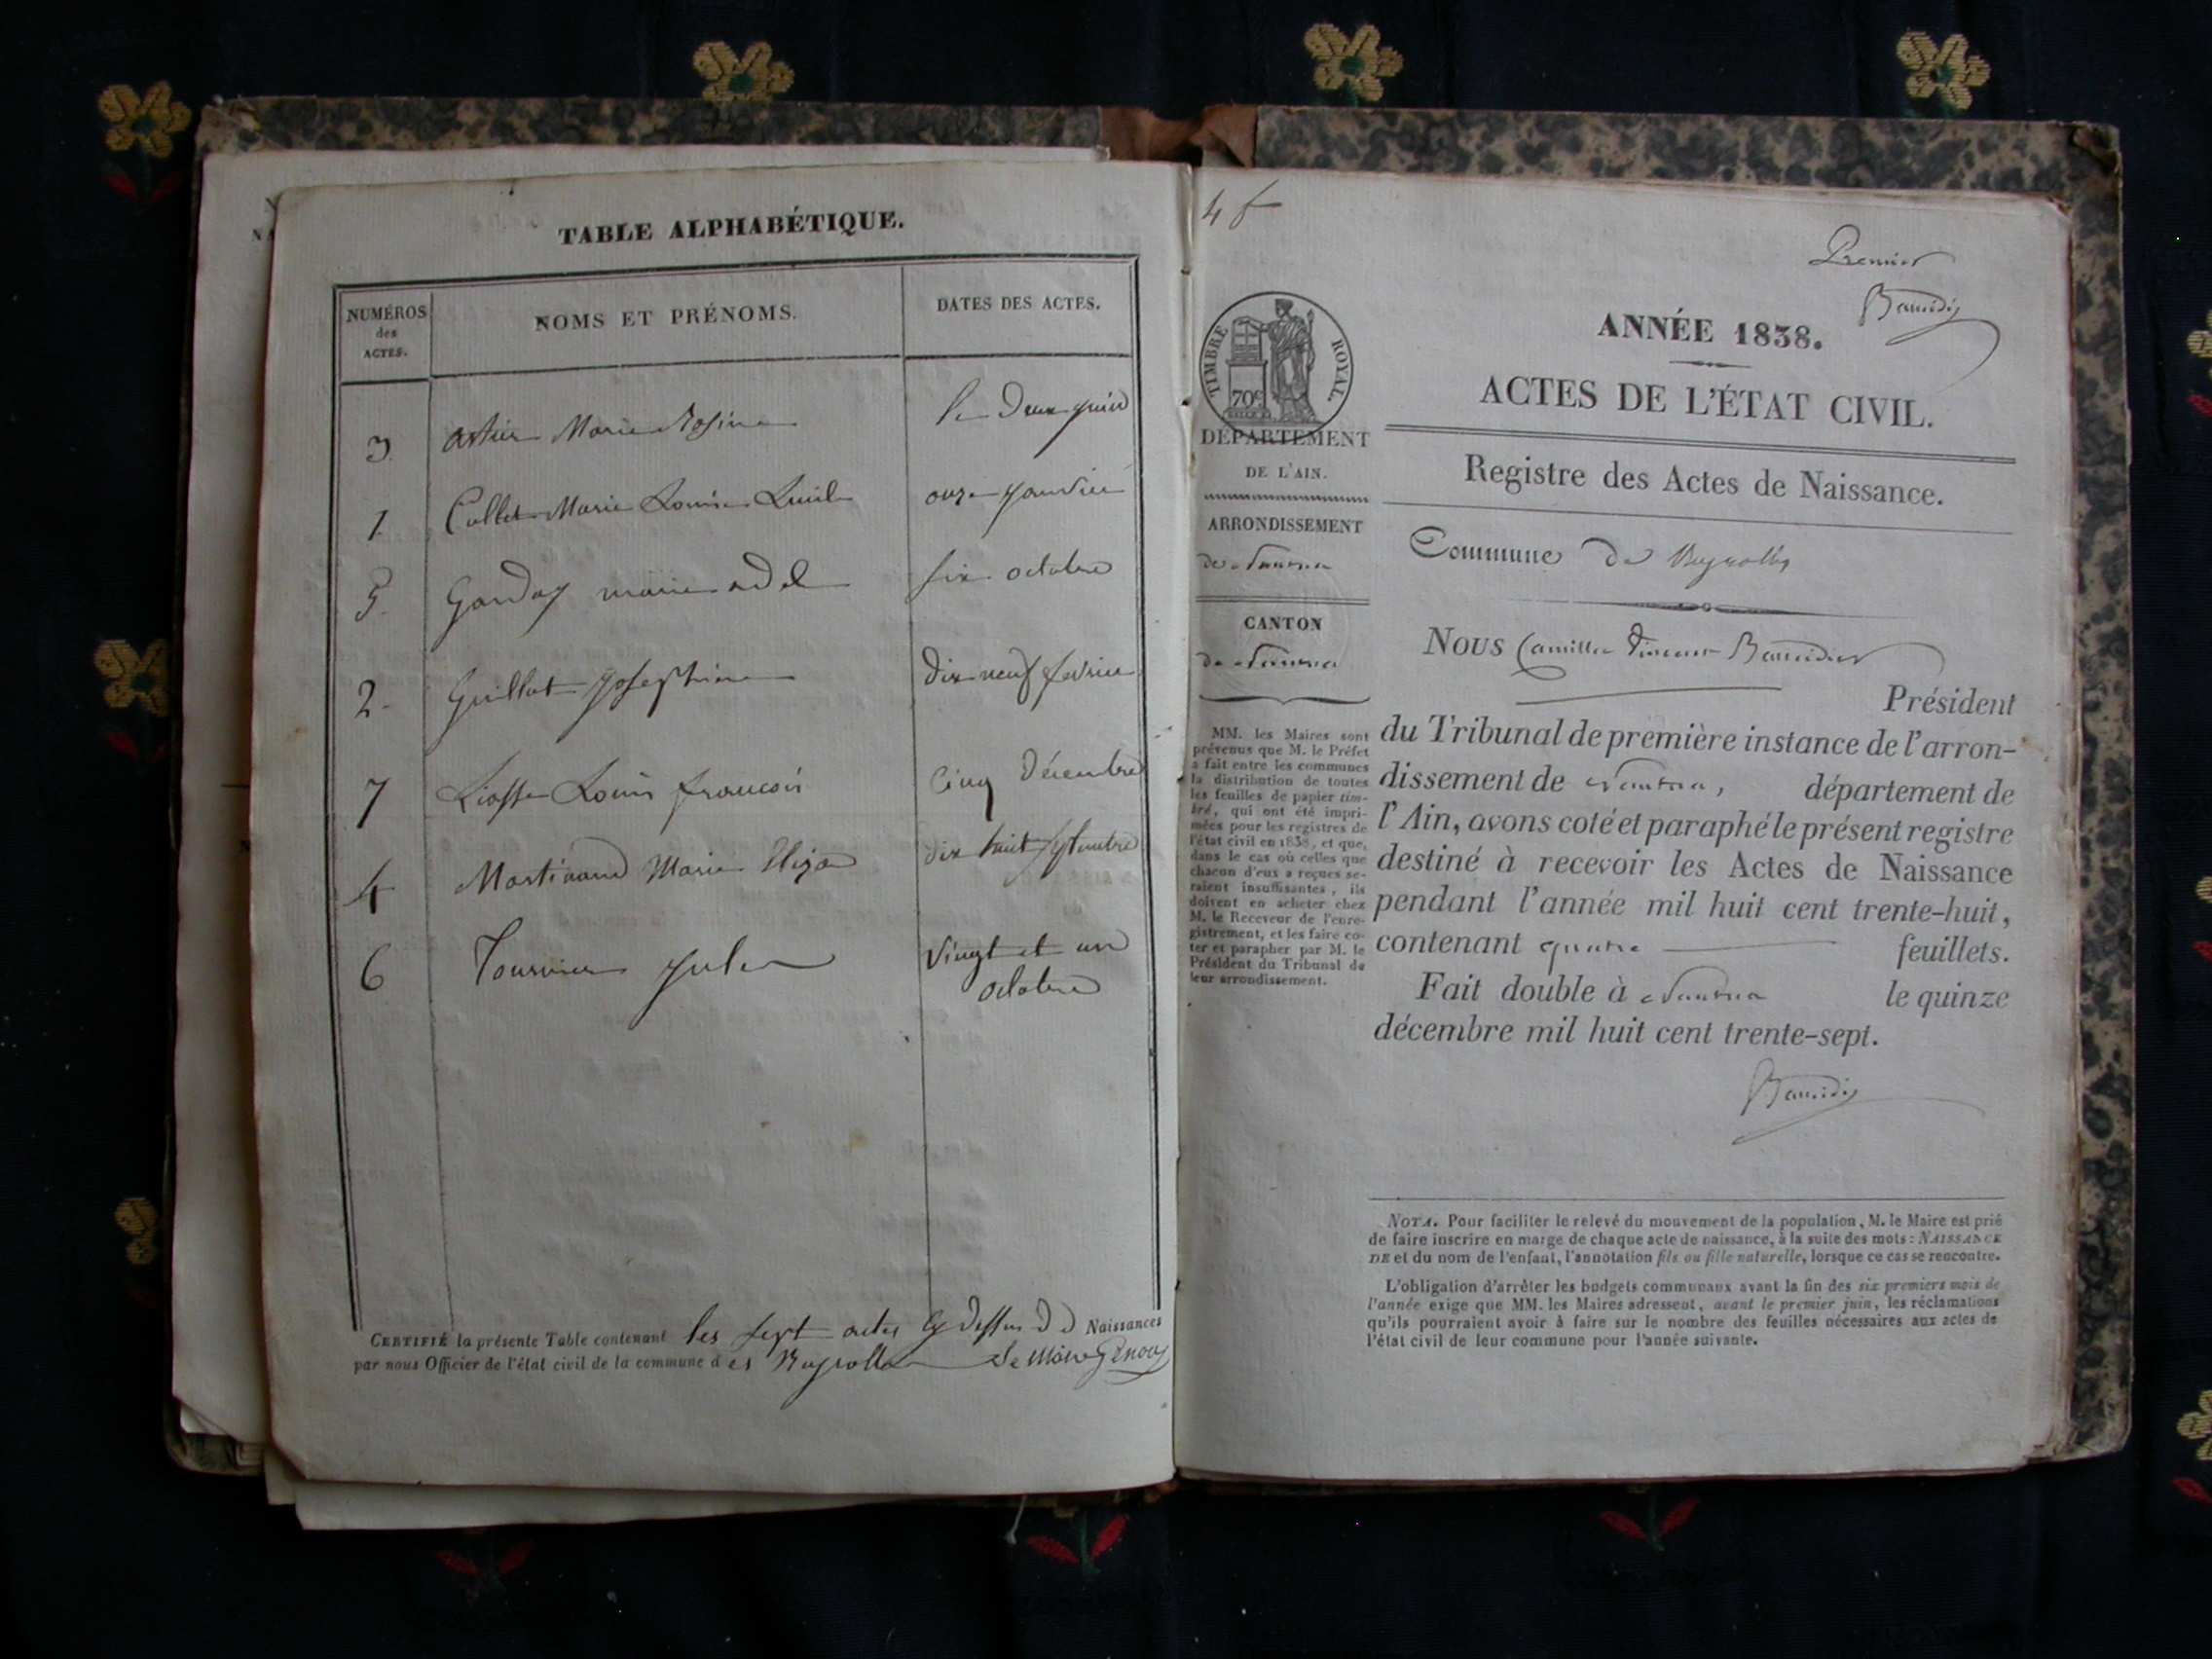 TABLE ALPHABÉTIQUE.
NUMÉROS
des
ACTES.
NOMS ET PRÉNOMS.
DATES DES ACTES.
3. Marie Rosine le Deux juin
1. Collet Marie Louise onze janvier
5. Marie adel six octobre
2. Guillot josephine Dix neuf fevrier
7 Louis francois Cinq Décembre
4 Martinand Marie Eliza dix huit septembre
6 Tournier jules Vingt et un
octobre
CERTIFIÉ la présente Table contenant les sept actes cy dessus D D Naissances
par nous Officier de l'état civil de la commune des Neyrolles Le Maire
4 f
Premier
TIMBRE ROYAL.
70c
ANNÉE 1838.
ACTES DE L'ÉTAT CIVIL.
Registre des Actes de Naissance.
DÉPARTEMENT
DE L'AIN.
ARRONDISSEMENT
de Nantua
CANTON
de Nantua
MM. les Maires sont
prévenus que M. le Préfet
a fait entre les communes
la distribution de toutes
les feuilles de papier tim-
bré, qui ont été impri-
mées pour les registres de
l'état civil en 1838, et que,
dans le cas où celles que
chacun d'eux a reçues se-
raient insuffisantes, ils
doivent en acheter chez
M. le Receveur de l'enre-
gistrement, et les faire co-
ter et parapher par M. le
Président du Tribunal de
leur arrondissement.
Commune de Neyrolles
Nous Camille Vincent Baudier
Président
du Tribunal de première instance de l'arron-
dissement de Nantua, département de
l'Ain, avons coté et paraphé le présent registre
destiné à recevoir les Actes de Naissance
pendant l'année mil huit cent trente-huit,
contenant quatre feuillets.
Fait double à Nantua le quinze
décembre mil huit cent trente-sept.
NOTA. Pour faciliter le relevé du mouvement de la population, M. le Maire est prié
de faire inscrire en marge de chaque acte de naissance, à la suite des mots : NAISSANCE
DE et du nom de l'enfant, l'annotation fils ou fille naturelle, lorsque ce cas se rencontre.
L'obligation d'arrêter les budgets communaux avant la fin des six premiers mois de
l'année exige que MM. les Maires adressent, avant le premier juin, les réclamations
qu'ils pourraient avoir à faire sur le nombre des feuilles nécessaires aux actes de
l'état civil de leur commune pour l'année suivante.